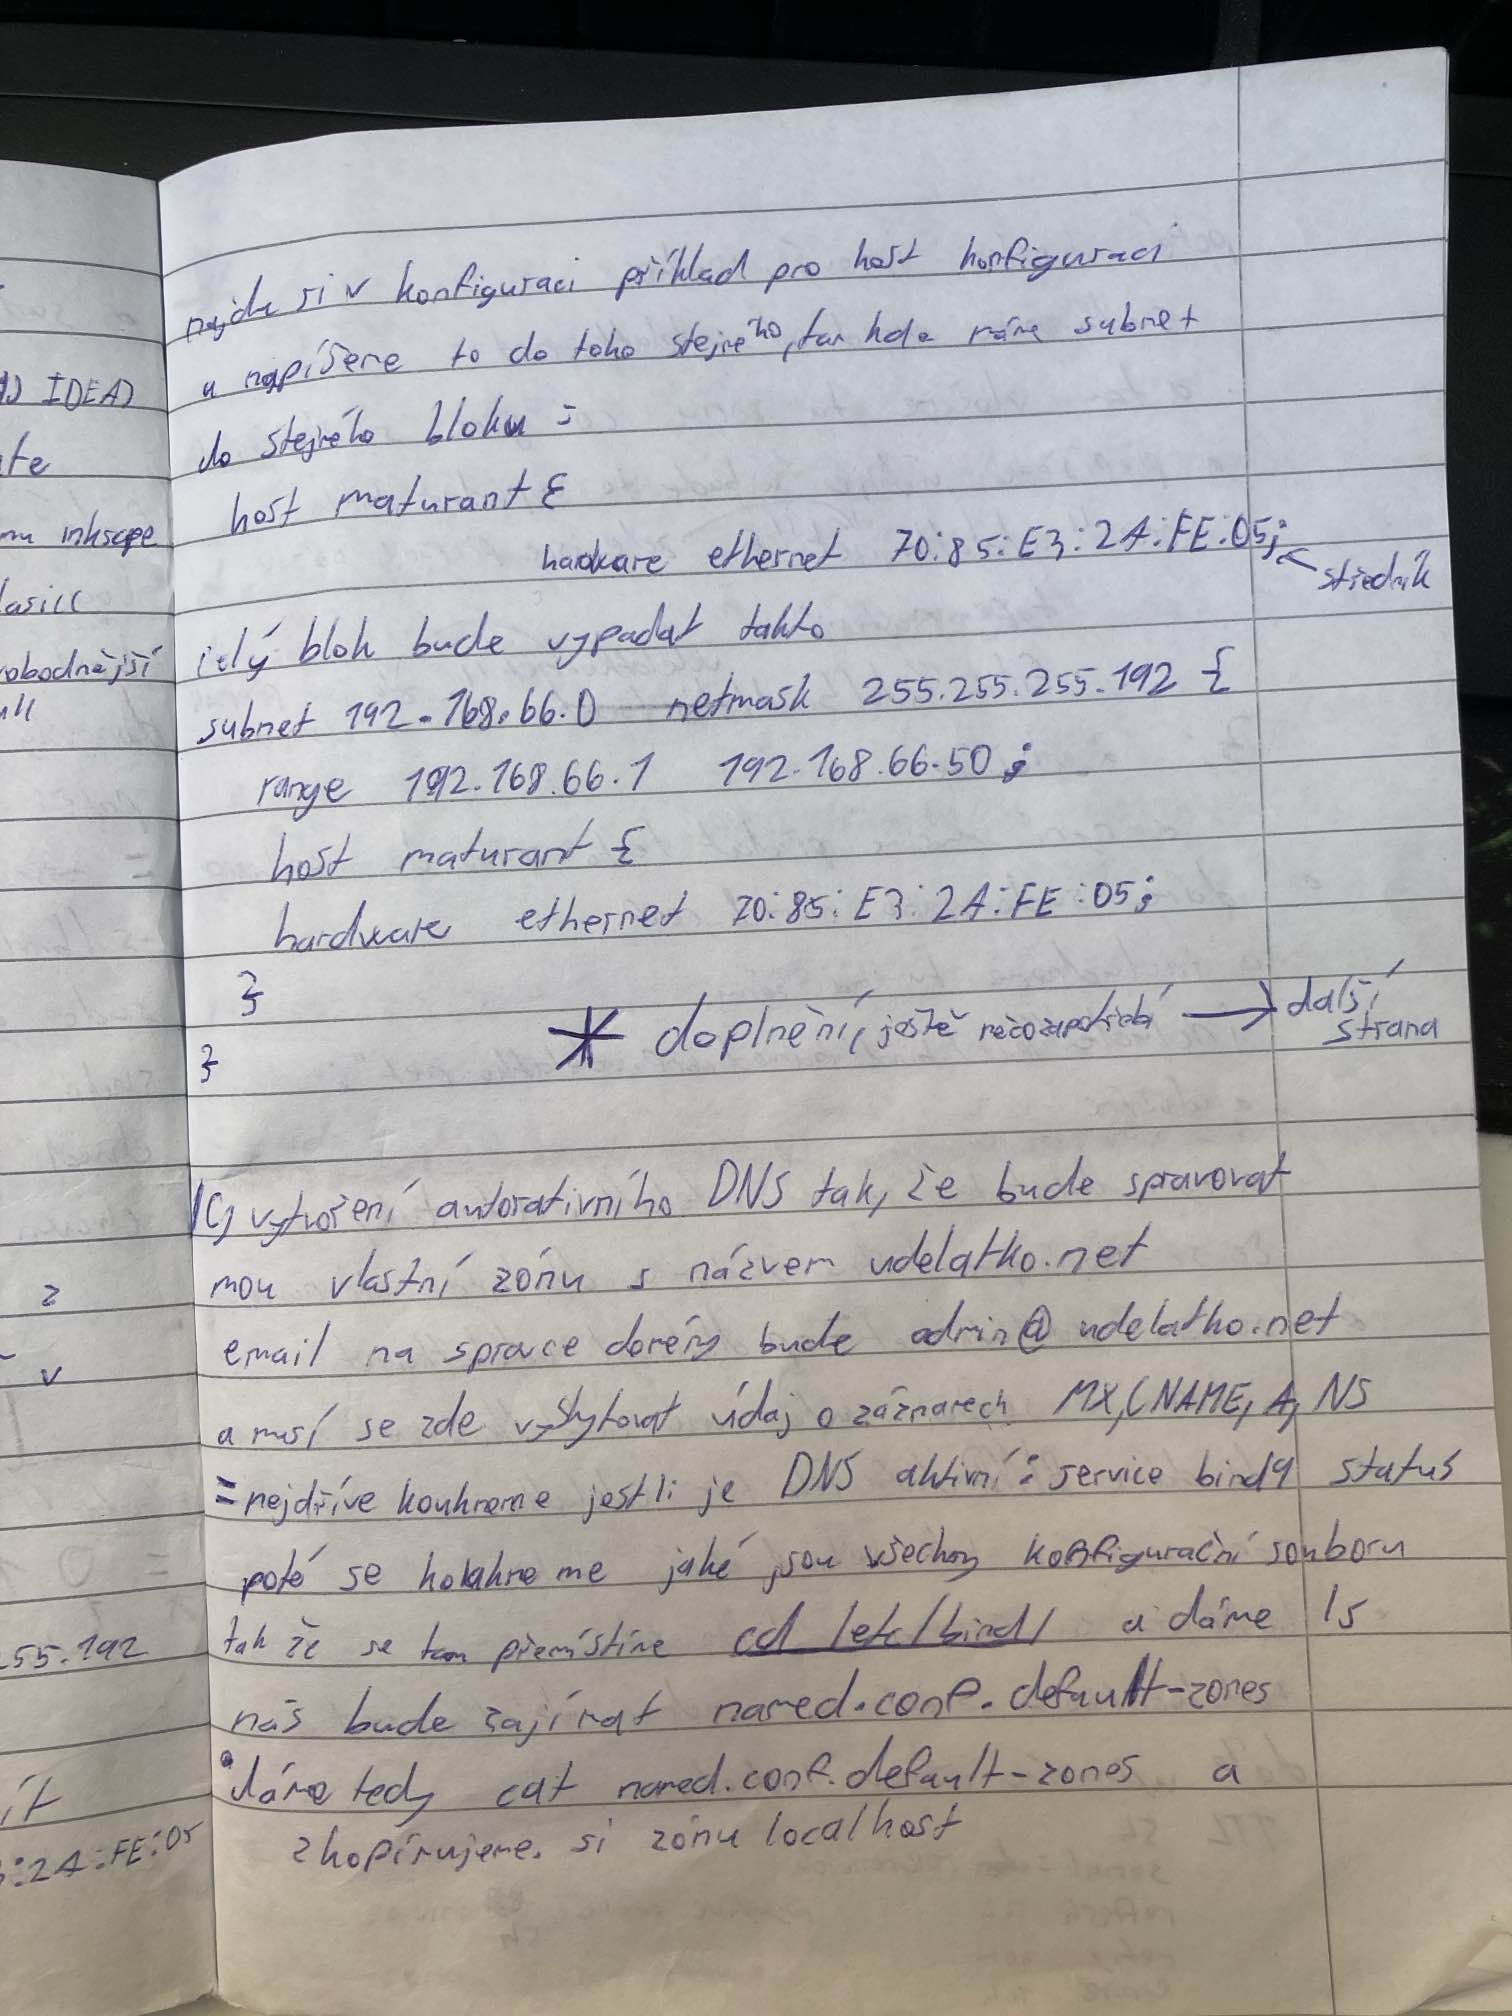 najdu si v konfiguraci příklad pro host konfiguraci
a napíšeme to do toho stejného, tam kde máme subnet
do stejného bloku =
host maturant {
hardware ethernet 70:85:E3:2A:FE:05; ← středník
celý blok bude vypadat takto
subnet 192.168.66.0 netmask 255.255.255.192 {
range 192.168.66.1 192.168.66.50;
host maturant {
hardware ethernet 70:85:E3:2A:FE:05;
}
* doplnění, ještě něco zapotřebí → další strana
}
1C) vytvoření autorativního DNS tak, že bude spravovat
mou vlastní zónu s názvem udelatko.net
email na správce domény bude admin@udelatko.net
a musí se zde vyskytovat údaj o záznamech MX, CNAME, A, NS
= nejdříve koukneme jestli je DNS aktivní: service bind9 status
poté se koukneme jaké jsou všechny konfigurační souboru
tak že se tam přemístíme cd /etc/bind/ a dáme ls
nás bude zajímat named.conf.default-zones
dáme tedy cat named.conf.default-zones a
zkopírujeme si zónu localhost
1) IDEA)
ate
mu inkscape
lasicc
vobodnější
z
v
.55.192
ít
:2A:FE:05